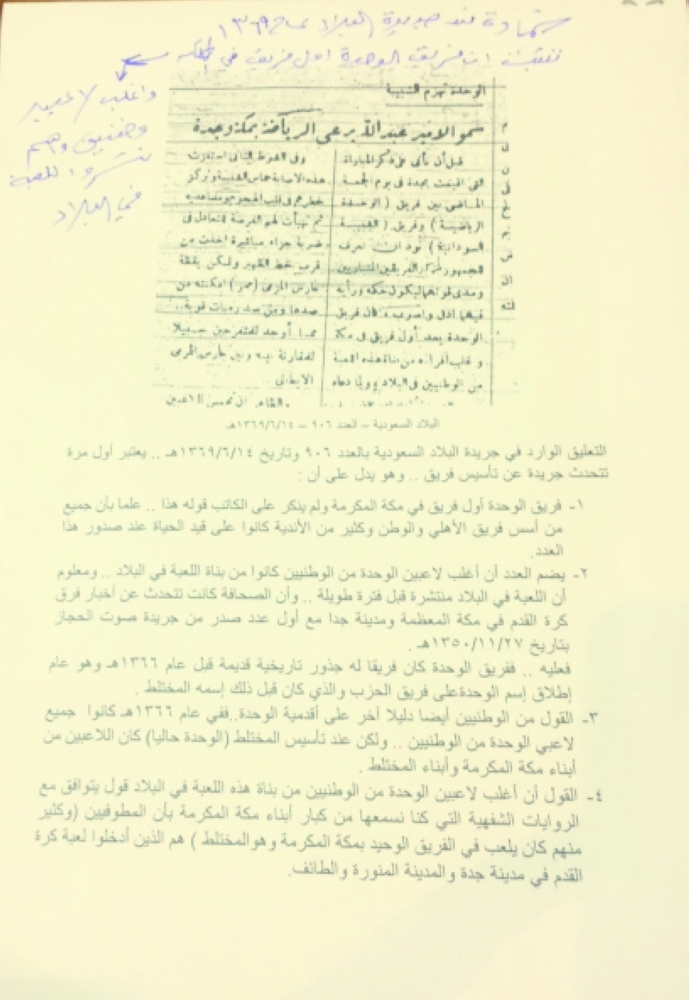 شهادة من جريدة البلاد عام ١٣٦٩
تثبت ان فريق الوحدة اول فريق في المملكة
واغلب لاعبيه
وطنيين وهم
نشروا اللعبة
في البلاد
الوحدة تهزم الشبيبة
سمو الامير عبد الله يرعى الرياضة بمكة وجدة
قبل أن نأتي على ذكر المباراة
التي اقيمت بجدة في يوم الجمعة
الماضي بين فريق ( الوحدة
الرياضية ) وفريق ( الشبيبة
السودانية ) نود ان نعرف
الجمهور الفريقين المتباريين
ومدى قواهما ليكون حكمه ورأيه
فيهما ادق واصوب فكان فريق
الوحدة يعد أول فريق في مكة
وغلب أفراده من بناة هذه اللعبة
من الوطنيين في البلاد
وفي الشوط الثاني
هذه الاصابة حماس الشبيبة وتركز
خطرهم في قلب الهجوم
ثم تهيأت لهم الفرصة للتعادل في
ضربة جزاء مباشرة اخذت من
قرب خط الظهير ولكن يقظة
حارس المرمى امكنته من
صدها وبين صد رميات قوية ..
مما أوجد للمتفرجين سبيلا
للمقارنة بينه وبين حارس المرمى
البلاد السعودية – العدد ٩٠٦ – ١٣٦٩/٦/١٤هـ
التعليق الوارد في جريدة البلاد السعودية بالعدد ٩٠٦ وتاريخ ١٣٦٩/٦/١٤هـ .. يعتبر أول مرة
تتحدث جريدة عن تأسيس فريق .. وهو يدل على أن :
١- فريق الوحدة أول فريق في مكة المكرمة ولم ينكر على الكاتب قوله هذا .. علما بأن جميع
من أسس فريق الأهلي والوطن وكثير من الأندية كانوا على قيد الحياة عند صدور هذا
العدد.
٢- يضم العدد أن أغلب لاعبين الوحدة من الوطنيين كانوا من بناة اللعبة في البلاد .. ومعلوم
أن اللعبة في البلاد منتشرة قبل فترة طويلة .. وأن الصحافة كانت تتحدث عن أخبار فرق
كرة القدم في مكة المعظمة ومدينة جدا مع أول عدد صدر من جريدة صوت الحجاز
بتاريخ ١٣٥٠/١١/٢٧هـ .
فعليه .. ففريق الوحدة كان فريقا له جذور تاريخية قديمة قبل عام ١٣٦٦هـ وهو عام
إطلاق إسم الوحدةعلى فريق الحزب والذي كان قبل ذلك إسمه المختلط .
٣- القول من الوطنيين أيضا دليلا آخر على أقدمية الوحدة..ففي عام ١٣٦٦هـ كانوا جميع
لاعبي الوحدة من الوطنيين .. ولكن عند تأسيس المختلط (الوحدة حاليا) كان اللاعبين من
أبناء مكة المكرمة وأبناء المختلط .
٤- القول أن أغلب لاعبين الوحدة من الوطنيين من بناة هذه اللعبة في البلاد قول يتوافق مع
الروايات الشفهية التي كنا نسمعها من كبار أبناء مكة المكرمة بأن المطوفيين (وكثير
منهم كان يلعب في الفريق الوحيد بمكة المكرمة وهوالمختلط ) هم الذين أدخلوا لعبة كرة
القدم في مدينة جدة والمدينة المنورة والطائف.